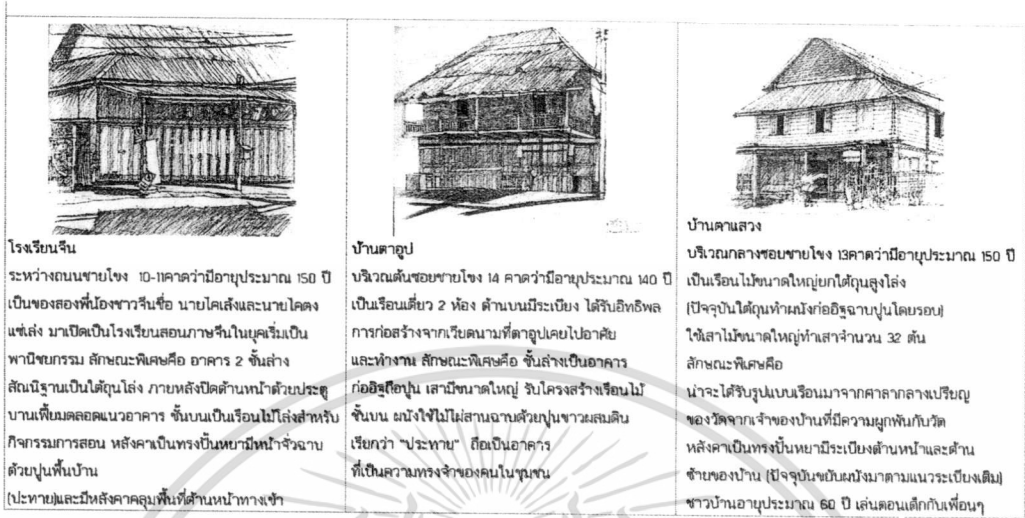 โรงเรียนจีน
ระหว่างถนนชายโขง 10-11คาดว่ามีอายุประมาณ 150 ปี
เป็นของสองพี่น้องชาวจีนชื่อ นายไคเส้งและนายไคตง
แซ่เล่ง มาเปิดเป็นโรงเรียนสอนภาษาจีนในยุคเริ่มเป็น
พาณิชยกรรม ลักษณะพิเศษคือ อาคาร 2 ชั้นล่าง
สัณนิฐานเป็นใต้ถุนโล่ง ภายหลังปิดด้านหน้าด้วยประตู
บานเฟี้ยมตลอดแนวอาคาร ชั้นบนเป็นเรือนไม้โล่งสำหรับ
กิจกรรมการสอน หลังคาเป็นทรงปั้นหยามีหน้าจั่วฉาบ
ด้วยปูนพื้นบ้าน
(ปะทาย)และมีหลังคาคลุมพื้นที่ด้านหน้าทางเข้า
บ้านตาอูป
บริเวณต้นซอยชายโขง 14 คาดว่ามีอายุประมาณ 140 ปี
เป็นเรือนเดี่ยว 2 ห้อง ด้านบนมีระเบียง ได้รับอิทธิพล
การก่อสร้างจากเวียดนามที่ตาอูปเคยไปอาศัย
และทำงาน ลักษณะพิเศษคือ ชั้นล่างเป็นอาคาร
ก่ออิฐถือปูน เสามีขนาดใหญ่ รับโครงสร้างเรือนไม้
ชั้นบน ผนังใช้ไม้ไผ่สานฉาบด้วยปูนขาวผสมดิน
เรียกว่า "ประทาย" ถือเป็นอาคาร
ที่เป็นความทรงจำของคนในชุมชน
บ้านตาแสวง
บริเวณกลางซอยชายโขง 13คาดว่ามีอายุประมาณ 150 ปี
เป็นเรือนไม้ขนาดใหญ่ยกใต้ถุนสูงโล่ง
(ปัจจุบันใต้ถุนทำผนังก่ออิฐฉาบปูนโดยรอบ)
ใช้เสาไม้ขนาดใหญ่ทำเสาจำนวน 32 ต้น
ลักษณะพิเศษคือ
น่าจะได้รับรูปแบบเรือนมาจากศาลากลางเปรียญ
ของวัดจากเจ้าของบ้านที่มีความผูกพันกับวัด
หลังคาเป็นทรงปั้นหยามีระเบียงด้านหน้าและด้าน
ซ้ายของบ้าน (ปัจจุบันขยับผนังมาตามแนวระเบียงเดิม)
ชาวบ้านอายุประมาณ 60 ปี เล่นตอนเด็กกับเพื่อนๆ